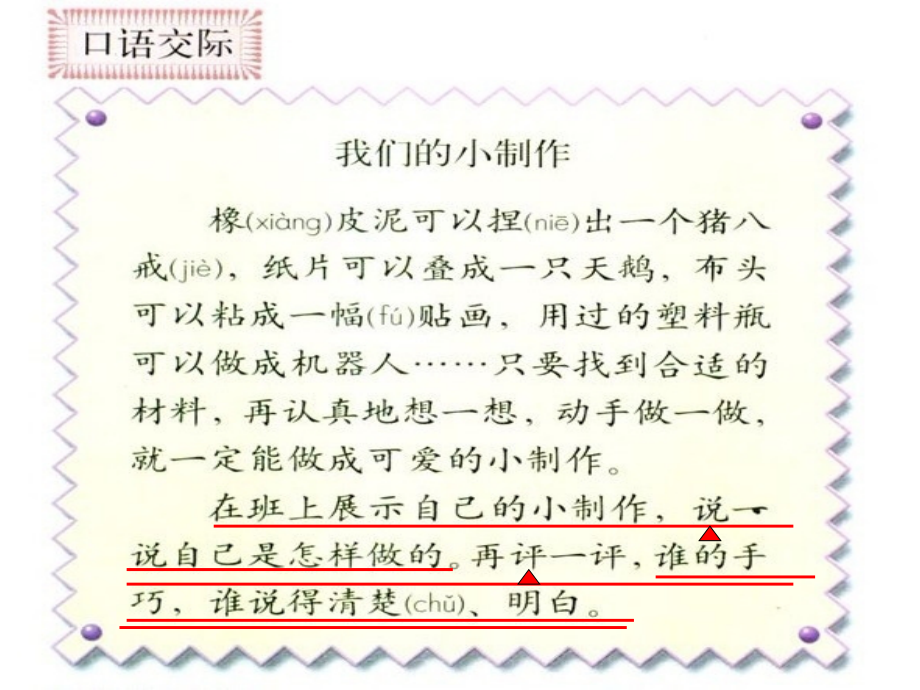 口语交际
我们的小制作
橡(xiàng)皮泥可以捏(niē)出一个猪八
戒(jiè)，纸片可以叠成一只天鹅，布头
可以粘成一幅(fú)贴画，用过的塑料瓶
可以做成机器人……只要找到合适的
材料，再认真地想一想，动手做一做，
就一定能做成可爱的小制作。
在班上展示自己的小制作，说一
说自己是怎样做的。再评一评，谁的手
巧，谁说得清楚(chǔ)、明白。